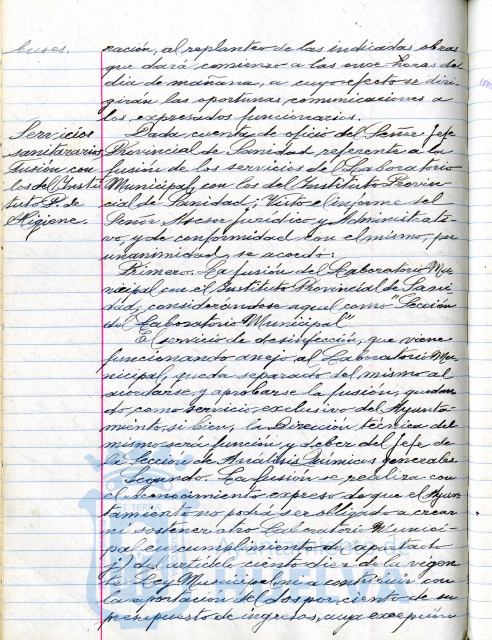 buses.
ración, al replanteo de las indicadas obras
que dará comienzo a las once horas del
dia de mañana, a cuyo efecto se diri-
girán las oportunas comunicaciones a
los expresados funcionarios.
Servicios
sanitarios,
Fusión con
los del Insti
tuto P. de
Higiene.
Dada cuenta de oficio del Señor Jefe
Provincial de Sanidad referente a la
fusión de los servicios del Laboratorio
Municipal, con los del Instituto Provin-
cial de Sanidad; Visto el informe del
Señor Asesor Jurídico y Administrati-
vo, y de conformidad con el mismo, por
unanimidad, se acordó:
Primero. La fusión del Laboratorio Mu-
nicipal con el Instituto Provincial de Sani-
dad, considerándose aquel como "Sección
del Laboratorio Municipal"
El servicio de desinfección, que viene
funcionando anejo al Laboratorio Mu-
nicipal, queda separado del mismo al
acordarse y aprobarse la fusión, quedan-
do, como servicio exclusivo del Ayunta-
miento, si bien, la Dirección técnica del
mismo será función y deber del Jefe de
la Sección de Análisis Químicos generales.
Segundo. La fusión se realiza con
el reconocimiento expreso de que el Ayun-
tamiento no podrá ser obligado a crear
ni sostener otro Laboratorio Munici-
pal en cumplimiento del apartado
j) del artículo ciento diez de la vigen-
te Ley Municipal, ni a contribuir con
la aportación del dos por ciento de su
presupuesto de ingresos, cuya excepción
Ayuntamiento de